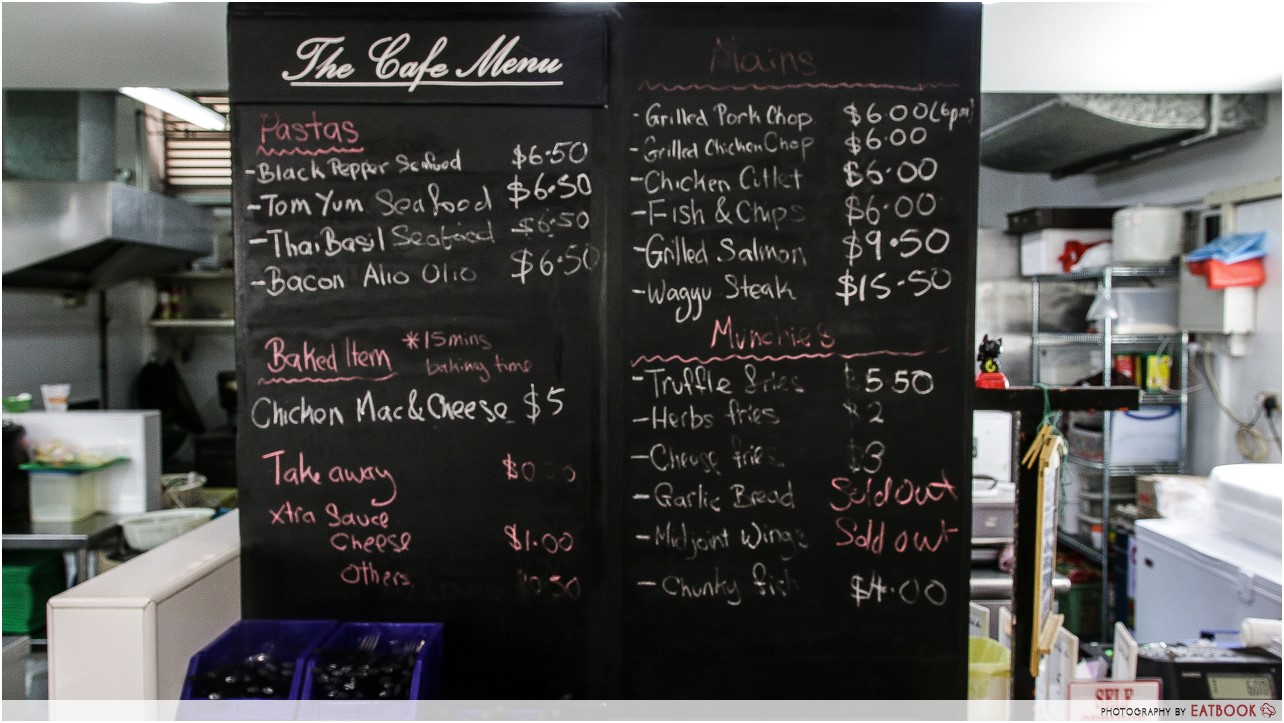 The Cafe Menu
Pastas
-Black Pepper Seafood $6.50
-Tom Yum Seafood $6.50
-Thai Basil Seafood $6.50
-Bacon Alio Olio $6.50
Baked Item *15mins
baking time
Chicken Mac & Cheese $5
Take away
xtra Sauce
Cheese $1.00
Others
Mains
-Grilled Pork Chop $6.00
-Grilled Chicken Chop $6.00
-Chicken Cutlet $6.00
-Fish & Chips $6.00
-Grilled Salmon $9.50
-Wagyu Steak $15.50
Munchies
-Truffle fries $5.50
-Herbs fries $2
-Cheese fries $3
-Garlic Bread Sold out
-Midjoint Wings Sold out
-Chunky $4.00
SELF
PHOTOGRAPHY BY EATBOOK